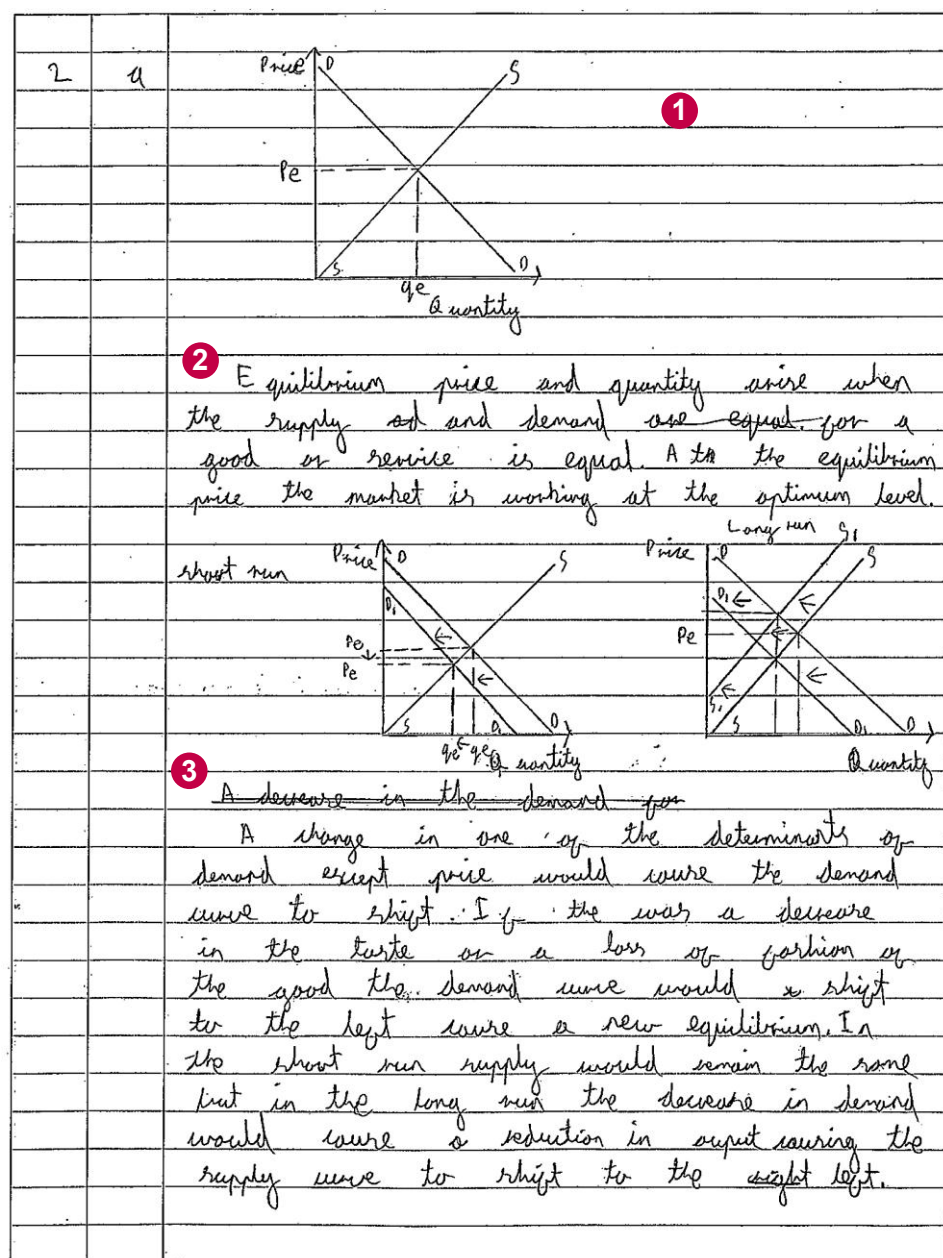 2 a
Price D S
1
Pe
S D
qe
Quantity
2
Equilibrium price and quantity arise when
the supply ad and demand are equal. for a
good or service is equal. A th the equilibrium
price the market is working at the optimum level.
short run
Price D S
D1
Pe
Pe
S D1 D
qe qe Quantity
Long run
Price D S1
S
D1
Pe
S1 S D1 D
Quantity
3
A decrease in the demand for
A change in one of the determinants of
demand except price would cause the demand
curve to shift. If the was a decrease
in the taste or a loss of fashion of
the good the demand curve would x shift
to the left cause a new equilibrium. In
the short run supply would remain the same
but in the long run the decrease in demand
would cause a reduction in ouput causing the
supply curve to shift to the right left.